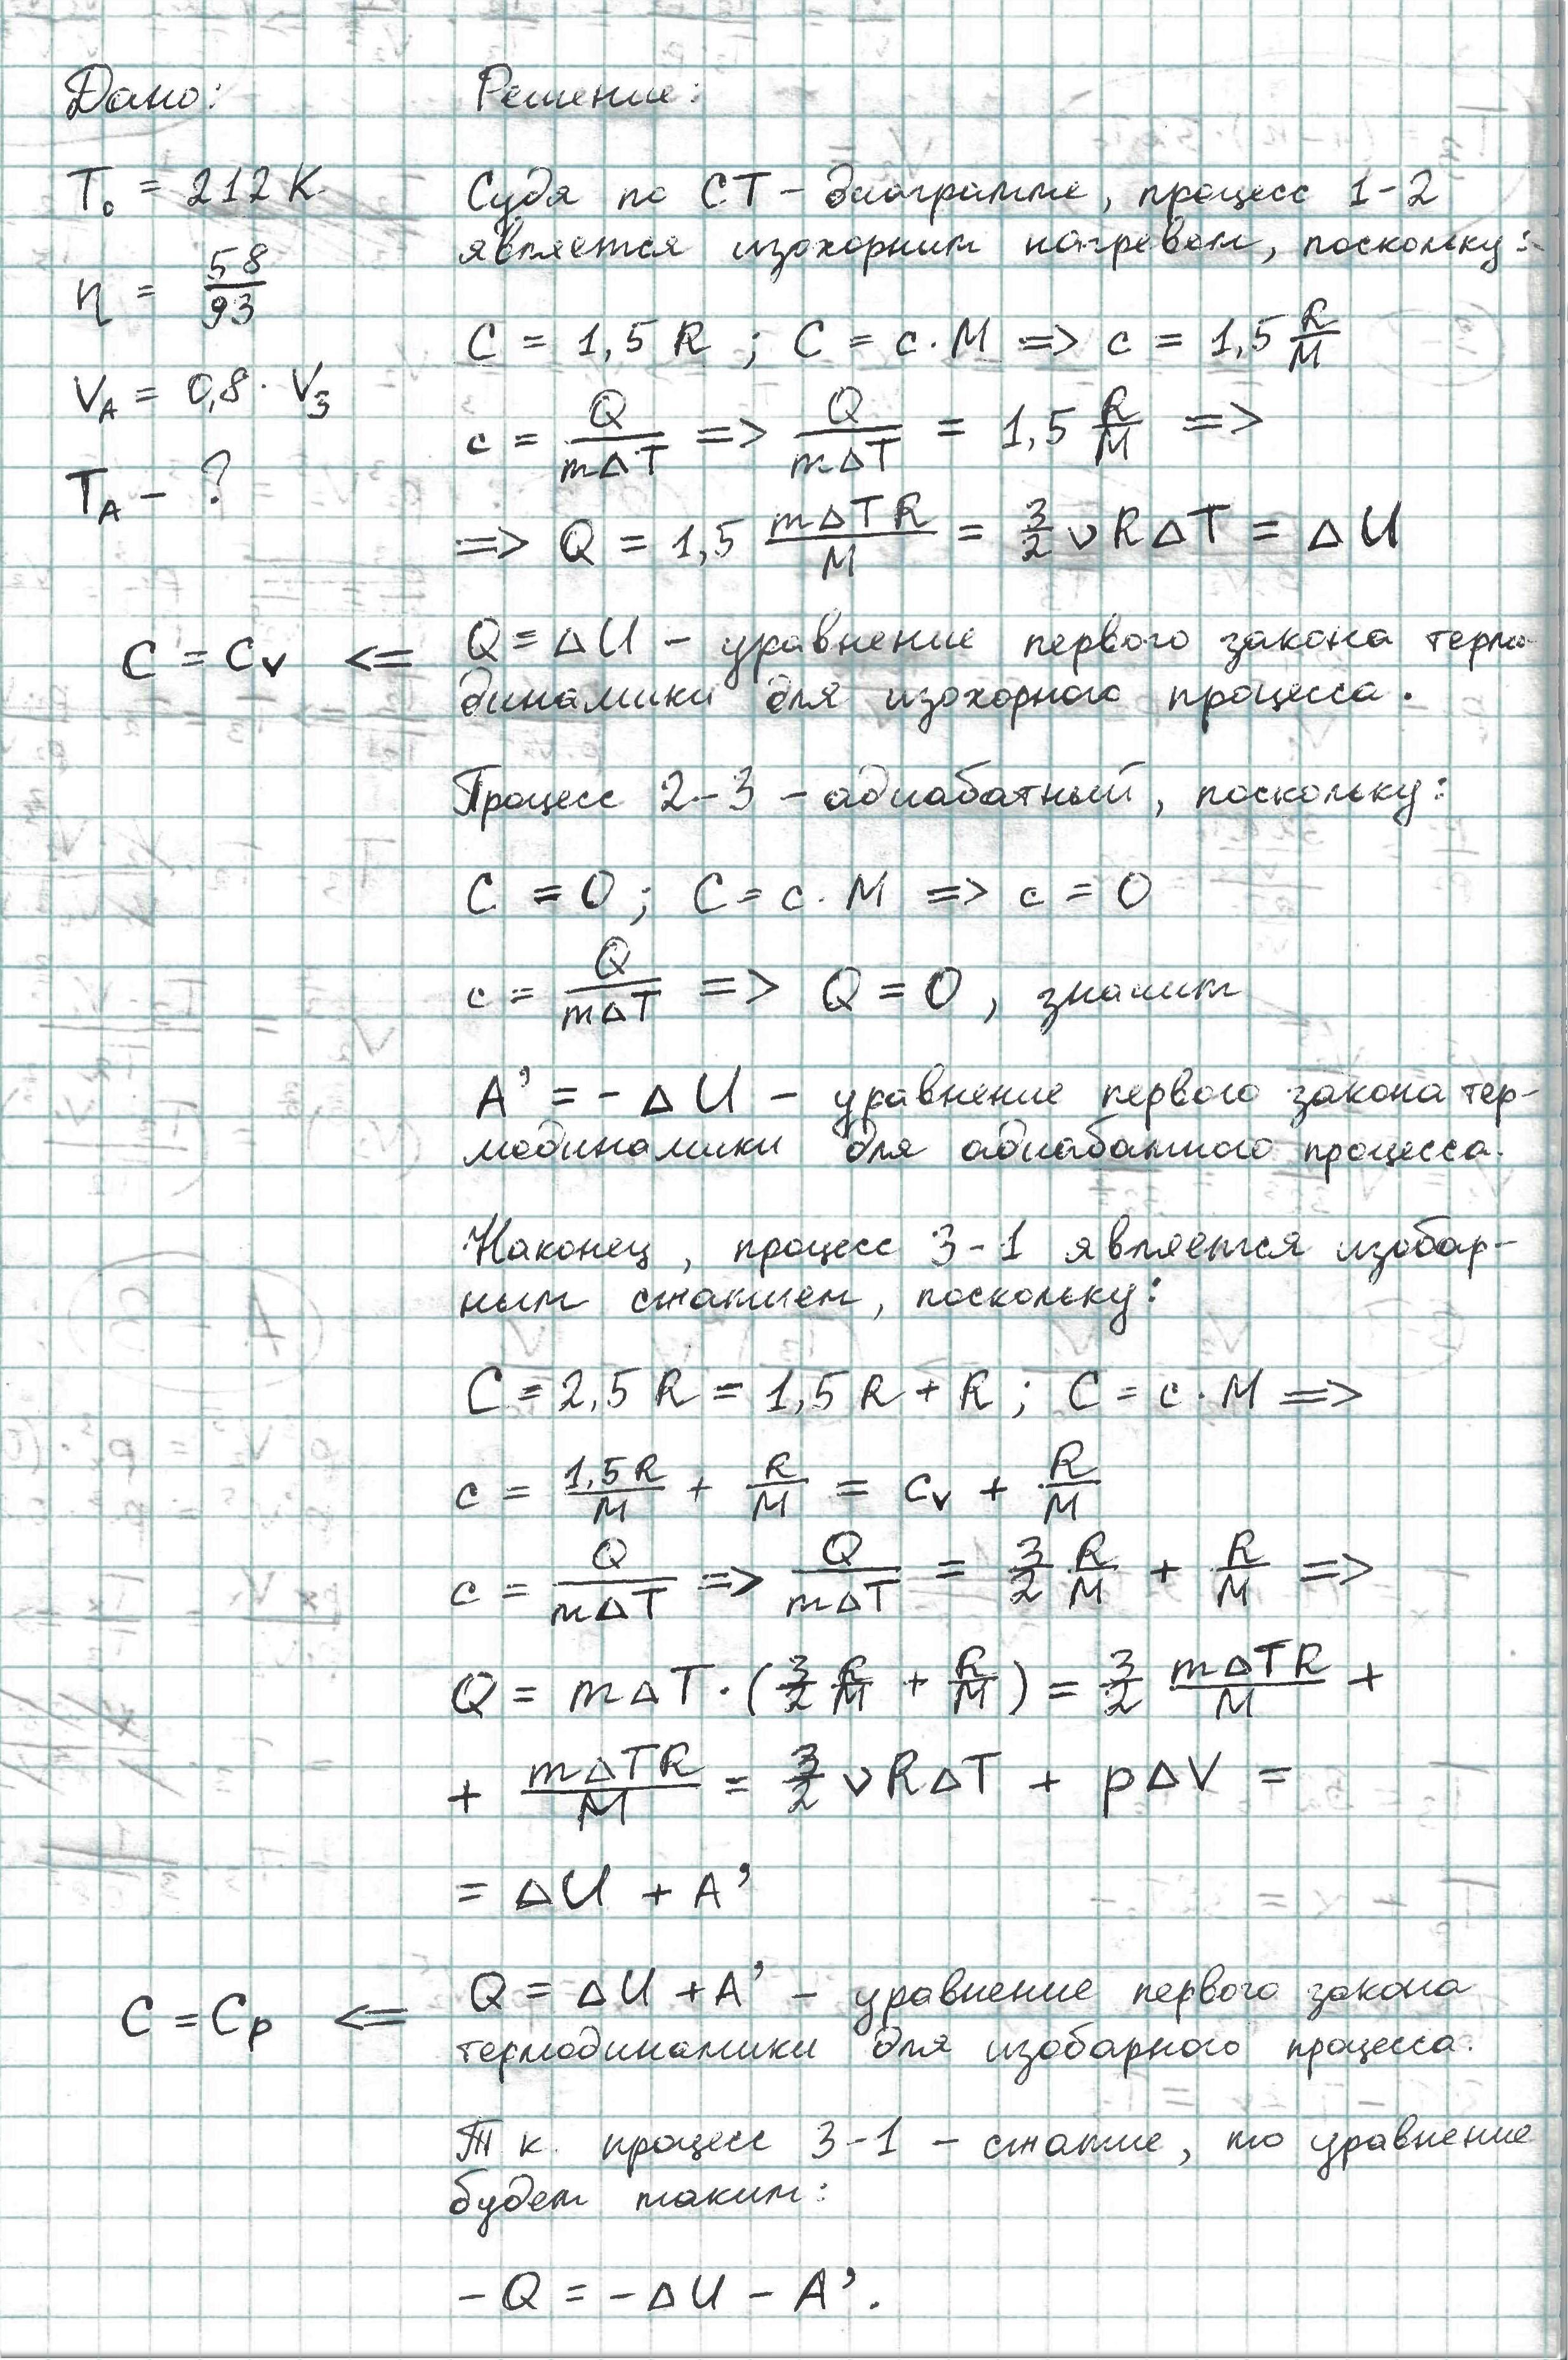 Дано:
Решение:
T₀ = 212 K
η = 58/93
V_A = 0,8 · V₃
T_A – ?
Судя по CT – диаграмме, процесс 1-2
является изохорним нагревом, поскольку:
C = 1,5 R ; C = c · M => c = 1,5 R/M
c = Q/(mΔT) => Q/(mΔT) = 1,5 R/M =>
=> Q = 1,5 mΔTR/M = 3/2 νRΔT = ΔU
C = C_V <= Q = ΔU – уравнение первого закона термо-
динамики для изохорного процесса.
Процесс 2-3 – адиабатный, поскольку:
C = 0 ; C = c · M => c = 0
c = Q/(mΔT) => Q = 0 , значит
A' = – ΔU – уравнение первого закона тер-
модинамики для адиабатного процесса.
Наконец , процесс 3-1 является изобар-
ным сжатием, поскольку:
C = 2,5 R = 1,5 R + R ; C = c · M =>
c = 1,5R/M + R/M = c_V + R/M
c = Q/(mΔT) => Q/(mΔT) = 3/2 R/M + R/M =>
Q = mΔT · (3/2 R/M + R/M) = 3/2 mΔTR/M +
+ mΔTR/M = 3/2 νRΔT + pΔV =
= ΔU + A'
C = C_p <= Q = ΔU + A' – уравнение первого закона
термодинамики для изобарного процесса.
Т к. процесс 3-1 – сжатие, то уравнение
будет таким:
– Q = – ΔU – A'.